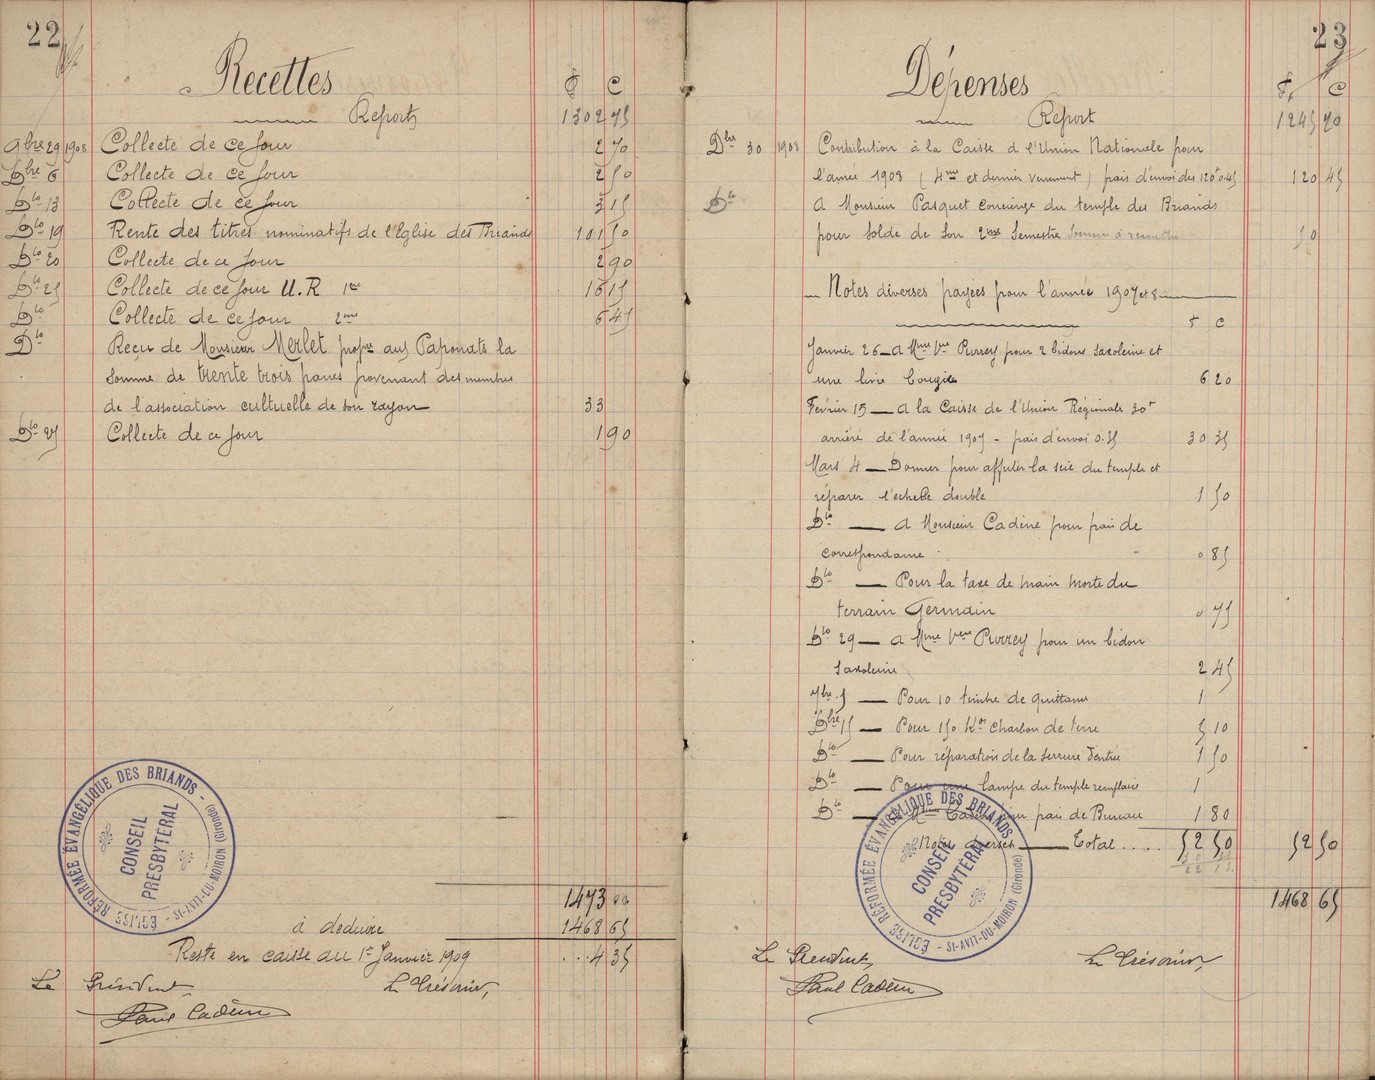 22
Recettes
F C
Report 1302 75
9bre 29 1908 Collecte de ce Jour 2 70
Dbre 6 Collecte de ce Jour 2 50
Dto 13 Collecte de ce Jour 3 15
Dto 19 Rente des titres nominatifs de l'Eglise des Briands 101 50
Dto 20 Collecte de ce Jour 2 90
Dto 25 Collecte de ce Jour U.R 1ere 15 15
Dto Collecte de ce Jour 2eme 6 45
Dto Reçu de Monsieur Merlet propre aux Paponats la
somme de trente trois francs provenant des membres
de l'association cultuelle de son rayon 33
Dto 27 Collecte de ce Jour 1 90
ÉGLISE RÉFORMÉE ÉVANGÉLIQUE DES BRIANDS - ST-AVIT-DU-MOIRON (Gironde)
CONSEIL PRESBYTÉRAL
1473 00
à déduire 1468 65
Reste en caisse au 1er Janvier 1909 ...4 35
Le Président, Le Trésorier,
Paul Cadène
23
Dépenses
F. C
Report 1245 70
Dbre 30 1908 Contribution à la Caisse d l'Union Nationale pour
l'année 1908 (4me et dernier versement) frais d'envoi des 120f 0.45 120 45
Dto A Monsieur Pasquet concierge du temple des Briands
pour solde de son 2eme Semestre 50
Notes diverses payées pour l'année 1907 et 8
F C
Janvier 26 - A Mme Vve Purrey pour 2 bidons saxoleine et
une livre bougie 6 20
Février 15 - A la Caisse de l'Union Régionale 30f
arriéré de l'année 1907 - frais d'envoi 0.35 30 35
Mars 4 - Donner pour affuter la scie du temple et
réparer l'echelle double 1 50
Dto - A Monsieur Cadène pour frais de
correspondance 0 85
Dto - Pour la taxe de main morte du
terrain Germain 0 75
Dto 29 - A Mme Vve Purrey pour un bidon
saxoleine 2 45
7bre 5 - Pour 10 timbre de quittance 1
Dbre 15 - Pour 150 Kos charbon de terre 5 10
Dto - Pour réparation de la serrure d'entrée 1 50
Dto - Pour une lampe du temple remplacée 1
Dto - A Mr Cadène pour frais de Bureau 1 80
Notes diverses - Total .... 52 50 52 50
ÉGLISE RÉFORMÉE ÉVANGÉLIQUE DES BRIANDS - ST-AVIT-DU-MOIRON (Gironde)
CONSEIL PRESBYTÉRAL
1468 65
Le Président, Le Trésorier,
Paul Cadène